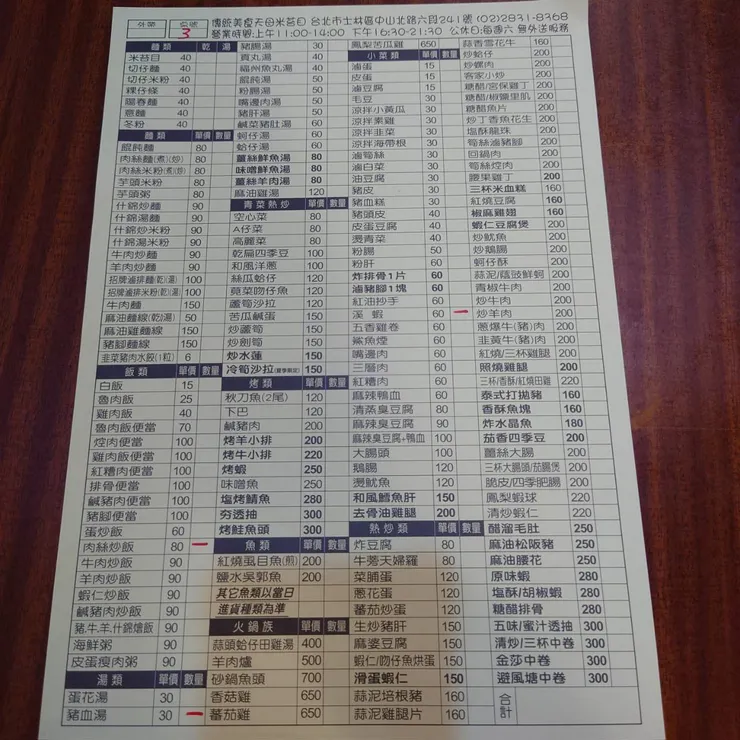 外帶 桌號 3
傳統美食天母米苔目 台北市士林區中山北路六段241號 (02)2831-8368
營業時間:上午11:00-14:00 下午16:30-21:30 公休日:每週六 無外送服務
麵類 乾 湯
米苔目 40
切仔麵 40
切仔米粉 40
粿仔條 40
陽春麵 40
意麵 40
冬粉 40
麵類 單價 數量
餛飩麵 80
肉絲麵(煮)(炒) 80
肉絲米粉(煮)(炒) 80
芋頭米粉 80
芋頭粥 80
什錦炒麵 90
什錦湯麵 90
什錦炒米粉 90
什錦湯米粉 90
牛肉炒麵 90
羊肉炒麵 90
招牌滷排麵(乾)(湯) 100
招牌滷排米粉(乾)(湯) 100
牛肉麵 150
麻油麵線(乾)(湯) 50
麻油雞麵線 150
豬腳麵線 150
韭菜豬肉水餃(1粒) 6
飯類 單價 數量
白飯 15
魯肉飯 25
雞肉飯 40
魯肉飯便當 70
焢肉便當 100
雞肉飯便當 100
紅糟肉便當 100
排骨便當 100
鹹豬肉便當 100
豬腳便當 100
蛋炒飯 60
肉絲炒飯 80
牛肉炒飯 90
羊肉炒飯 90
蝦仁炒飯 90
鹹豬肉炒飯 90
豬.牛.羊.什錦燴飯 90
海鮮粥 90
皮蛋瘦肉粥 90
湯類 單價 數量
蛋花湯 30
豬血湯 30
豬腸湯 30
貢丸湯 40
福州魚丸湯 40
餛飩湯 50
粉腸湯 50
嘴邊肉湯 50
豬肝湯 50
鹹菜豬肚湯 60
蚵仔湯 60
蛤仔湯 60
薑絲鮮魚湯 80
味噌鮮魚湯 80
薑絲羊肉湯 80
麻油雞湯 120
青菜熱炒 單價 數量
空心菜 80
A仔菜 80
高麗菜 80
乾扁四季豆 100
和風洋蔥 100
絲瓜蛤仔 100
莧菜吻仔魚 100
蘆筍沙拉 120
苦瓜鹹蛋 120
炒蘆筍 150
炒劍筍 150
炒水蓮 150
冷筍沙拉(夏季限定) 150
烤類 單價 數量
秋刀魚(2尾) 120
下巴 120
鹹豬肉 200
烤羊小排 200
烤牛小排 220
烤蝦 250
味噌魚 250
塩烤鯖魚 280
夯透抽 300
烤鮭魚頭 300
魚類 單價 數量
紅燒虱目魚(煎) 200
鹽水吳郭魚 200
其它魚類以當日
進貨種類為準
火鍋族 單價 數量
蒜頭蛤仔田雞湯 400
羊肉爐 500
砂鍋魚頭 700
香菇雞 650
蕃茄雞 650
鳳梨苦瓜雞 650
小菜類 單價 數量
滷蛋 15
皮蛋 15
滷豆腐 15
毛豆 30
涼拌小黃瓜 30
涼拌素雞 30
涼拌韭菜 30
涼拌海帶根 30
滷筍絲 30
滷白菜 30
油豆腐 30
豬皮 30
豬血糕 30
豬頭皮 40
皮蛋豆腐 40
燙青菜 40
粉腸 50
粉肝 60
炸排骨1片 60
滷豬腳1塊 60
紅油抄手 60
溪蝦 60
五香雞卷 60
鯊魚煙 60
嘴邊肉 60
三層肉 60
紅糟肉 60
麻辣鴨血 60
清蒸臭豆腐 80
麻辣臭豆腐 90
麻辣臭豆腐+鴨血 100
大腸頭 100
鵝腸 120
燙魷魚 120
和風鱈魚肝 150
去骨油雞腿 200
熱炒類 單價 數量
炸豆腐 80
牛蒡天婦羅 80
菜脯蛋 120
蔥花蛋 120
蕃茄炒蛋 120
生炒豬肝 150
麻婆豆腐 150
蝦仁/吻仔魚烘蛋 150
滑蛋蝦仁 150
蒜泥培根豬 160
蒜泥雞腿片 160
蒜香雪花牛 160
炒蛤仔 200
炒螺肉 200
客家小炒 200
糖醋/宮保雞丁 200
糖醋/椒鹽里肌 200
炒丁香魚花生 200
塩酥龍珠 200
筍絲滷豬腳 200
回鍋肉 200
筍絲焢肉 200
腰果雞丁 200
三杯米血糕 160
紅燒豆腐 160
椒麻雞翅 160
蝦仁豆腐煲 200
炒魷魚 200
炒鵝腸 200
蚵仔酥 200
蒜泥/蔭豉鮮蚵 200
青椒牛肉 200
炒牛肉 200
炒羊肉 200
蔥爆牛(豬)肉 200
韭黃牛(豬)肉 200
紅燒/三杯雞腿 200
照燒雞腿 200
三杯/香酥/紅燒田雞 220
泰式打拋豬 160
香酥魚塊 160
炸水晶魚 180
茄香四季豆 200
薑絲大腸 200
三杯大腸頭/茄腸煲 200
脆皮/四季肥腸 200
鳳梨蝦球 220
清炒蝦仁 220
醋溜毛肚 250
麻油松阪豬 250
麻油腰花 250
原味蝦 280
塩酥/胡椒蝦 280
糖醋排骨 280
五味/蜜汁透抽 300
清炒/三杯中卷 300
金莎中卷 300
避風塘中卷 300
合計